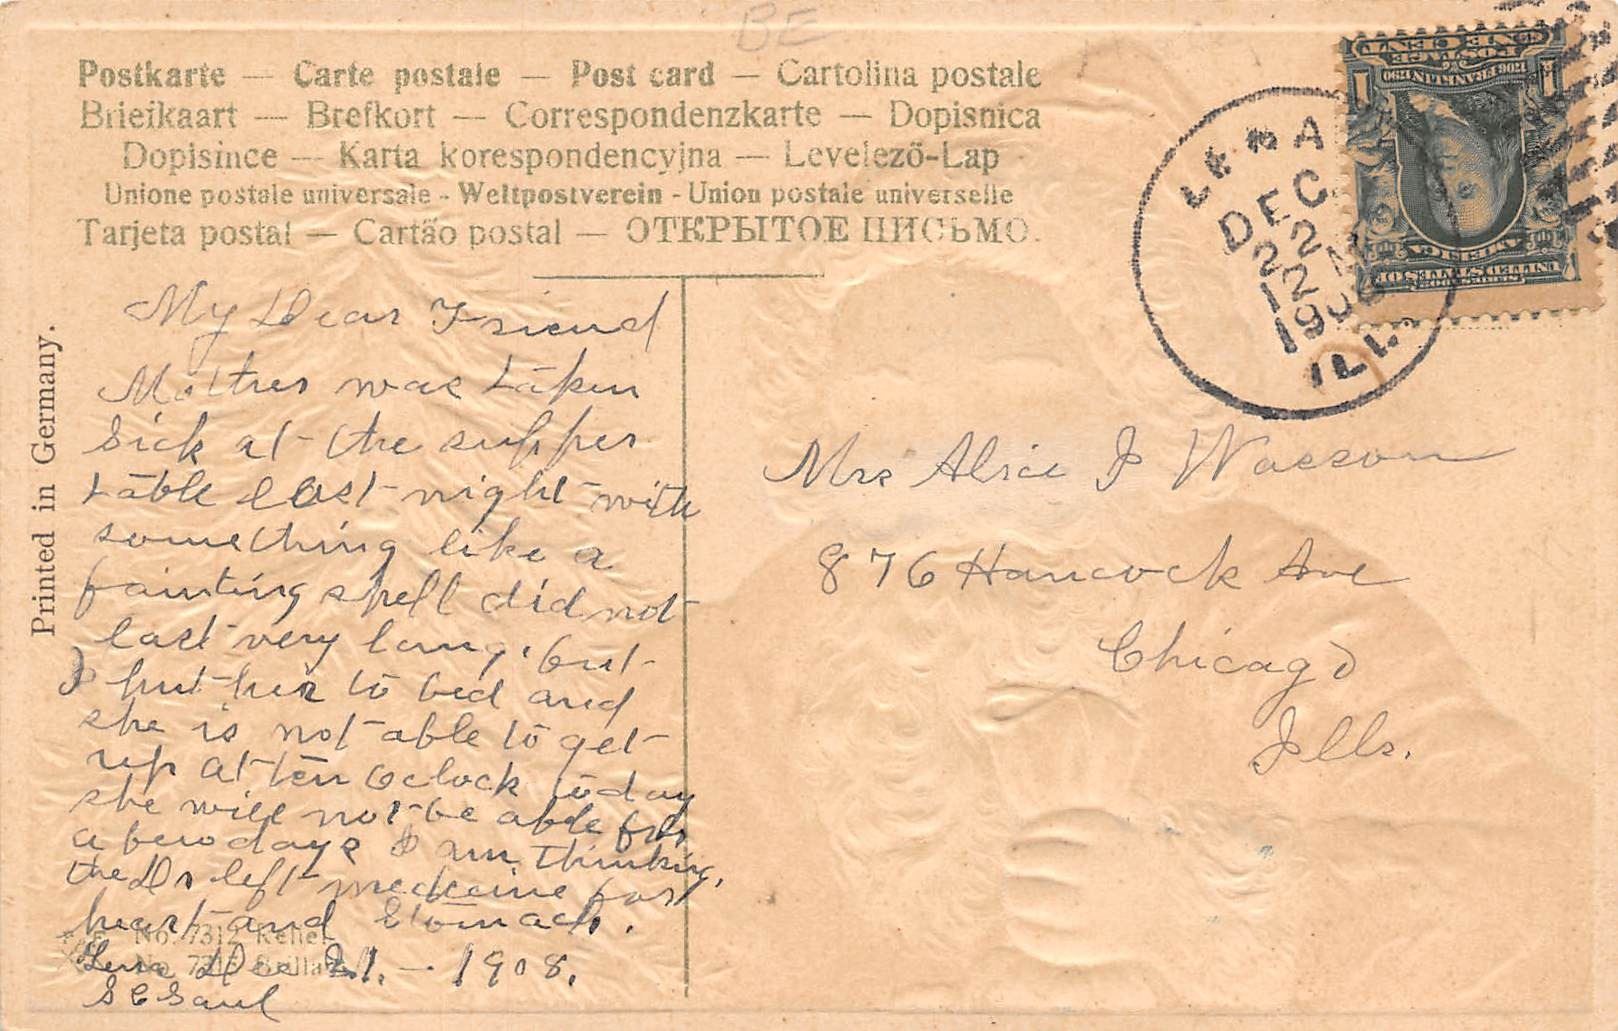 BE
Postkarte — Carte postale — Post card — Cartolina postale
Briefkaart — Brefkort — Correspondenzkarte — Dopisnica
Dopisince — Karta korespondencyjna — Levelező-Lap
Unione postale universale - Weltpostverein - Union postale universelle
Tarjeta postal — Cartão postal — ОТКРЫТОЕ ПИСЬМО.
Printed in Germany.
My Dear Friend
Mother was taken
sick at the supper
table last night with
something like a
fainting spell did not
last very long, but
I put her to bed and
she is not able to get
up at ten oclock today
she will not be able for
a few days I am thinking,
the Dr left medicine for
heart and Stomach.
No. 7312 Relief
No. 73 Brillant
Lena Dec 21. - 1908.
S C Saul
LENA
DEC
22
12 M
1908
ILL.
ONE CENT
POSTAGE
1706 FRANKLIN 1790
SERIES 1902
UNITED STATES OF
AMERICA
Mrs Alice J Wasson
876 Hancock Ave
Chicago
Ills.